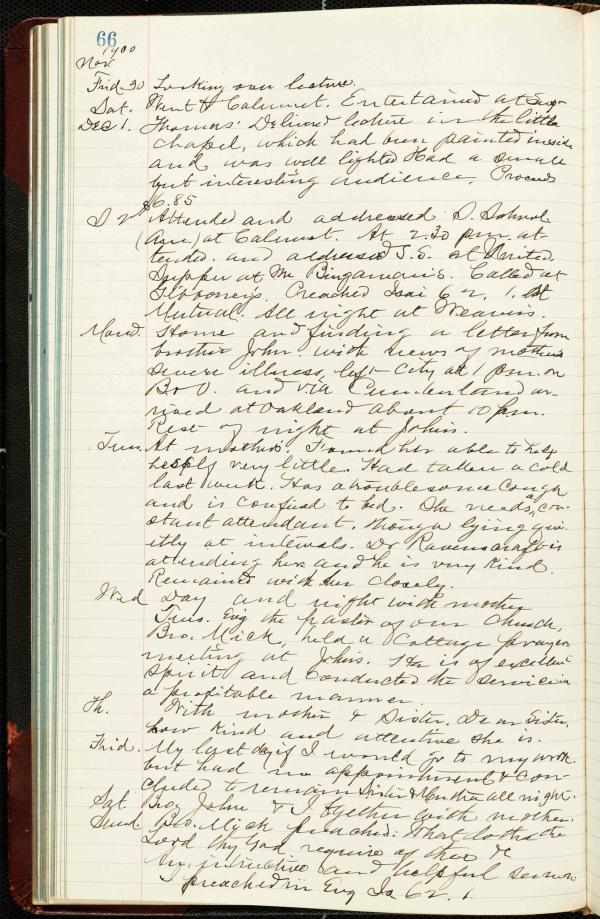 66
1900
Nov
Frid. 30 Looking over lecture.
Sat. Went to Calumet. Entertained at Sup-
Dec 1. Thomas' Delivered lecture in the little
chapel, which had been painted inside
and was well lighted Had a small
but interesting audience. Proceeds
$6.85
S 2 Attended and addressed S. School
(Am.) at Calumet. At 2.30 pm. at-
tended. and addressed S.S. at
Supper at Mr Bingaman's. Called at
Gibboneys. Preached Isai 62. 1. At
Mutual. All night at Weavers.
Mond. Home and finding a letter from
brother John. with news of mother's
severe illness, left City at 1 p.m. on
B & O. and via Cumberland ar-
rived at Oakland about 10 p.m.
Rest of night at Johns.
Tues. At mothers. Found her able to help
herself very little. Had taken a cold
last week. Has a troublesome cough
and is confined to bed. She needs a con-
stant attendant. though lying qui-
etly at intervals. Dr Ravenscraft is
attending her and he is very kind.
Remained with her closely.
Wed Day and night with mother
Tues. Evg the pastor of our Church,
Bro. Mick, held a Cottage prayer
meeting at Johns. He is of excellent
spirit and conducted the service in
a profitable manner.
Th. With mother & Sister. Dear Sister,
how kind and attentive she is.
Frid. My last day if I would go to my work.
but had no appointment & con-
cluded to remain Sister & all night.
Sat. Bro. John & I together with mother.
Sund. Bro. Mick preached: What doth the
Lord thy God require of thee &c
An instructive and helpful sermon
I preached in Evg Is 62. 1.